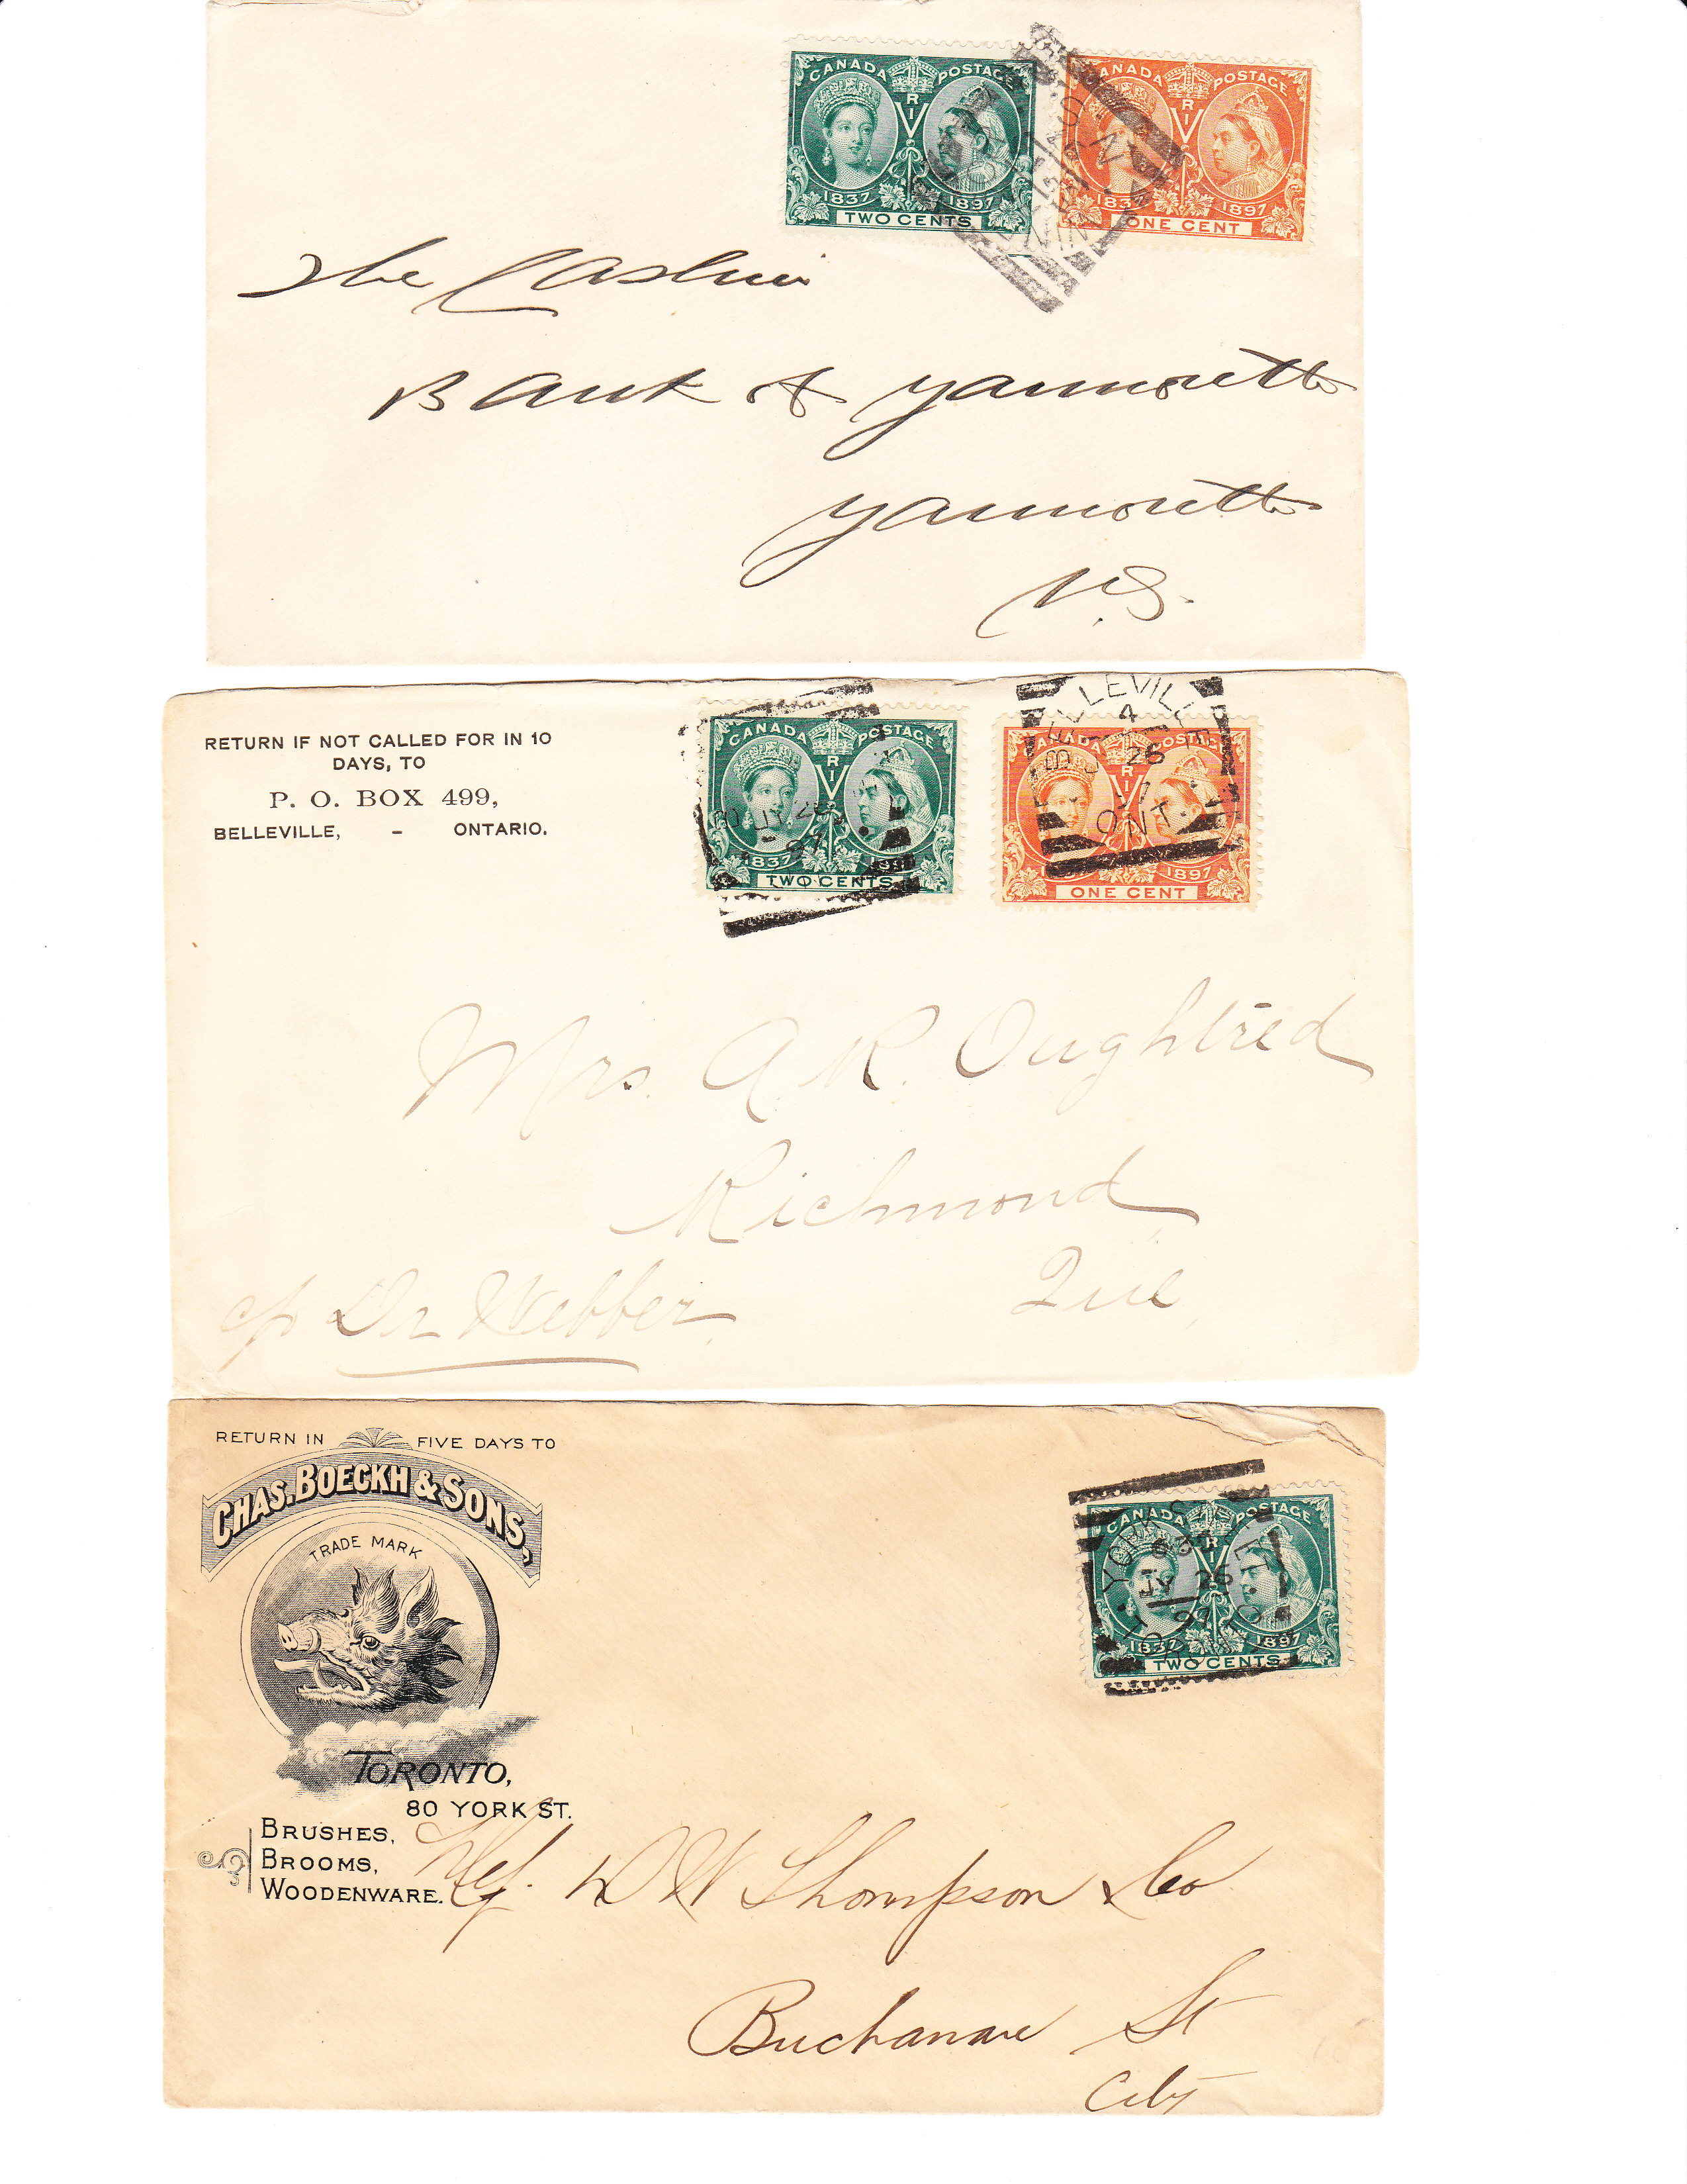 CANADA POSTAGE
V R I
1837 1897
TWO CENTS
CANADA POSTAGE
V R I
1837 1897
ONE CENT
The Cashier
Bank of Yarmouth
Yarmouth
N.S.
RETURN IF NOT CALLED FOR IN 10
DAYS, TO
P. O. BOX 499,
BELLEVILLE, - ONTARIO.
CANADA POSTAGE
V R I
1837 1897
TWO CENTS
JY 26
97
CANADA POSTAGE
1897
ONE CENT
BELLEVILLE
4
26
ONT.
Mrs. A. R. Oughtred
Richmond
Que
c/o Dr Webber
RETURN IN FIVE DAYS TO
CHAS. BOECKH & SONS,
TRADE MARK
TORONTO,
80 YORK ST.
BRUSHES,
BROOMS,
WOODENWARE.
CANADA POSTAGE
V R I
1837 1897
TWO CENTS
YORK ST
JY 26
97
D W Thompson & Co
Buchanan St
City